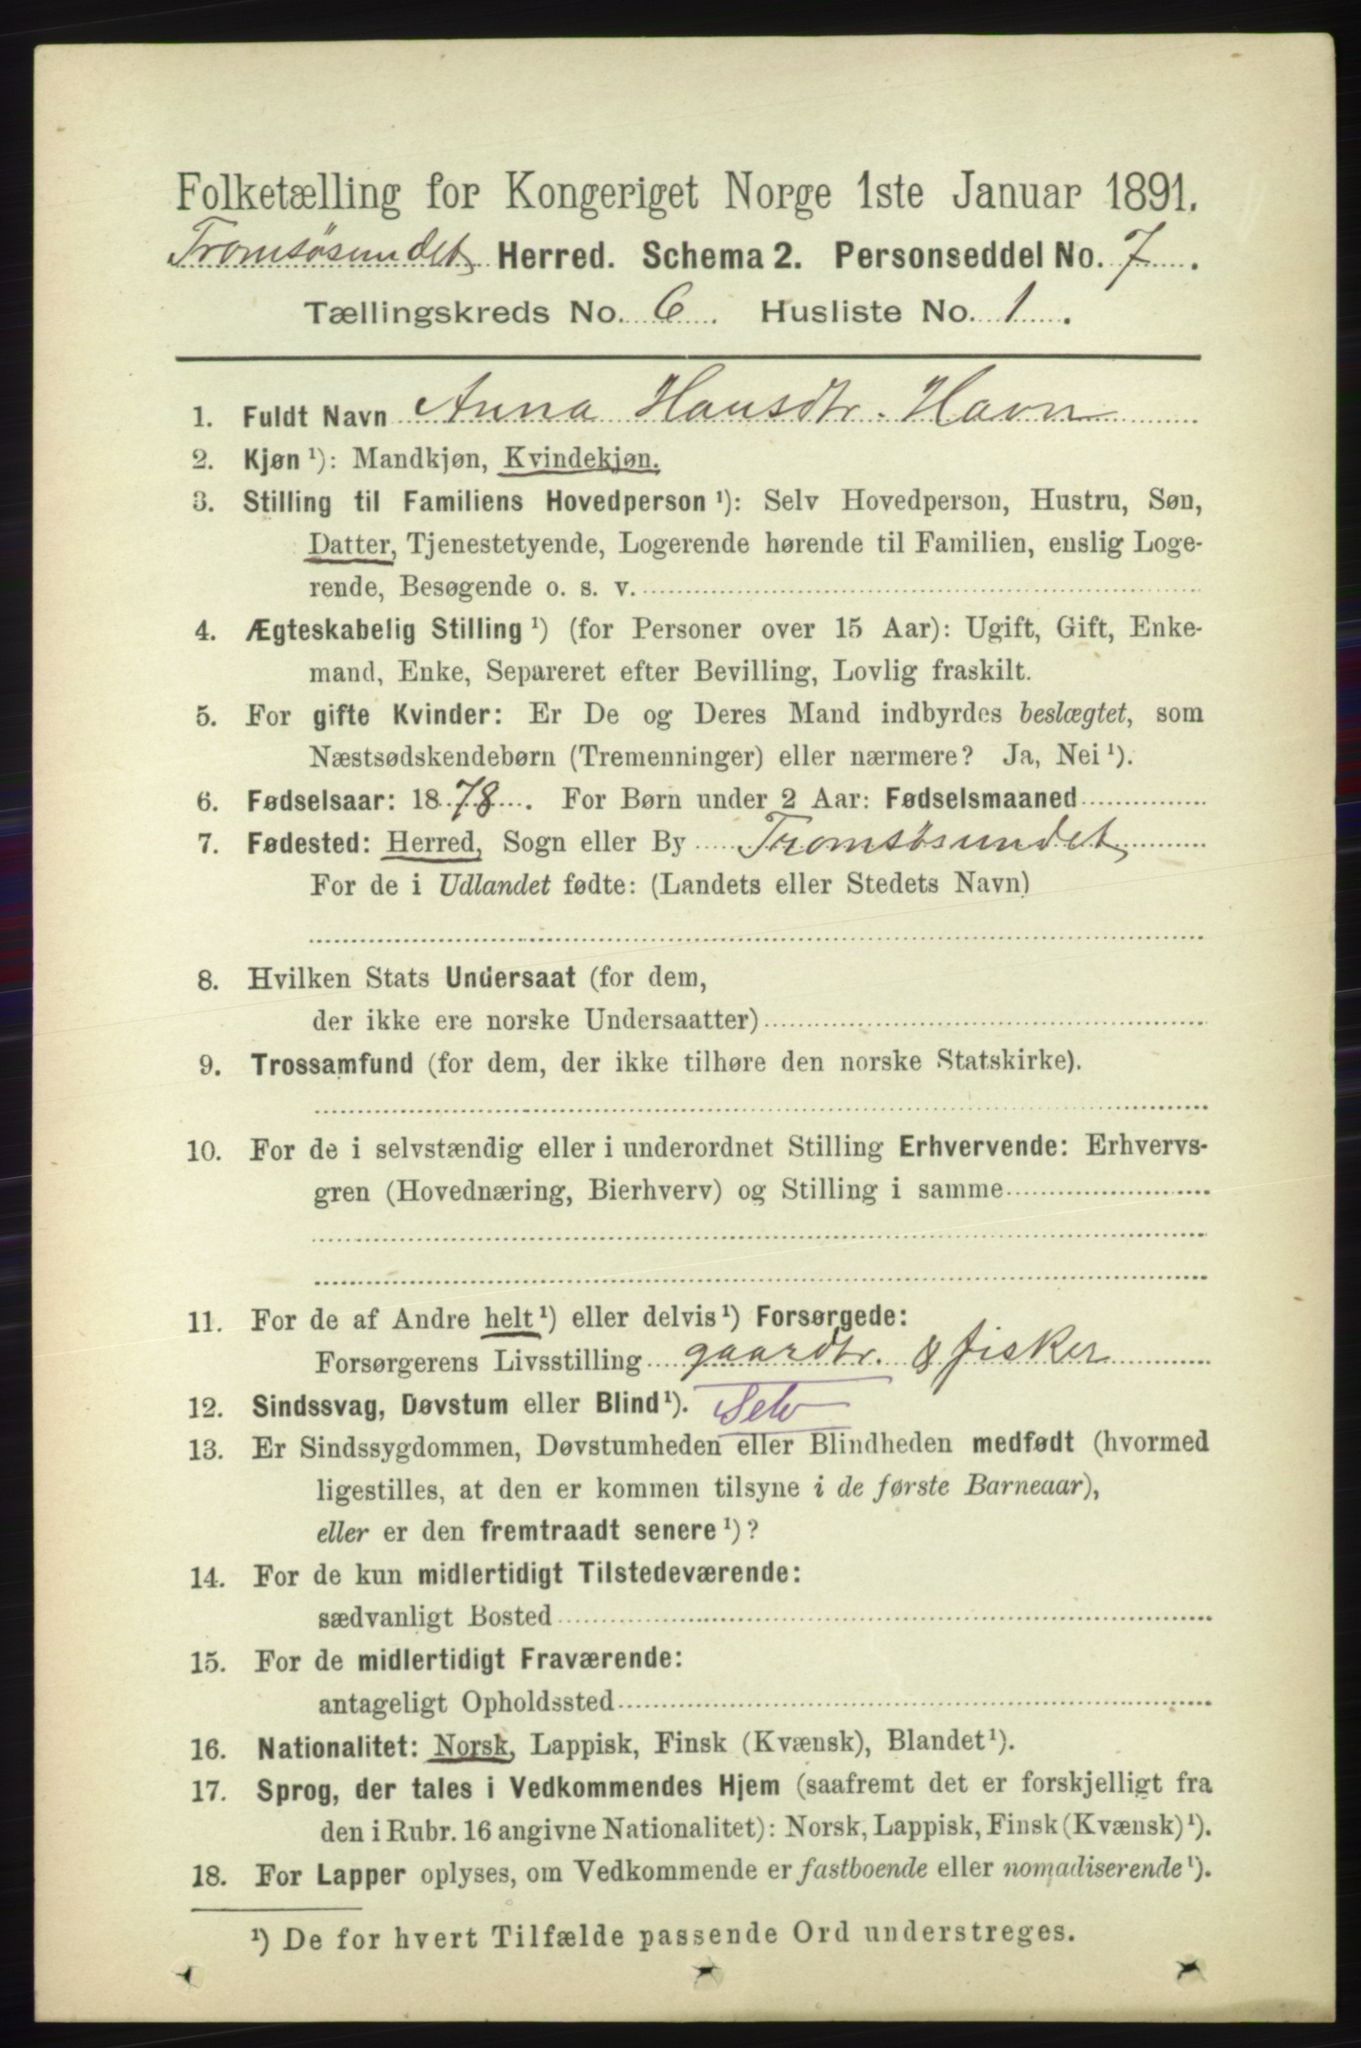 Folketælling for Kongeriget Norge 1ste Januar 1891.
Tromsøsundet Herred. Schema 2. Personseddel No. 7.
Tællingskreds No. 6. Husliste No. 1.
1. Fuldt Navn Anna Hansdtr. Havn
2. Kjøn ¹): Mandkjøn, Kvindekjøn.
3. Stilling til Familiens Hovedperson ¹): Selv Hovedperson, Hustru, Søn,
Datter, Tjenestetyende, Logerende hørende til Familien, enslig Loge-
rende, Besøgende o. s. v.
4. Ægteskabelig Stilling ¹) (for Personer over 15 Aar): Ugift, Gift, Enke-
mand, Enke, Separeret efter Bevilling, Lovlig fraskilt.
5. For gifte Kvinder: Er De og Deres Mand indbyrdes beslægtet, som
Næstsødskendebørn (Tremenninger) eller nærmere? Ja, Nei ¹).
6. Fødselsaar: 1878. For Børn under 2 Aar: Fødselsmaaned
7. Fødested: Herred, Sogn eller By Tromsøsundet
For de i Udlandet fødte: (Landets eller Stedets Navn)
8. Hvilken Stats Undersaat (for dem,
der ikke ere norske Undersaatter)
9. Trossamfund (for dem, der ikke tilhøre den norske Statskirke).
10. For de i selvstændig eller i underordnet Stilling Erhvervende: Erhvervs-
gren (Hovednæring, Bierhverv) og Stilling i samme
11. For de af Andre helt ¹) eller delvis ¹) Forsørgede:
Forsørgerens Livsstilling gaardbr. & fisker
12. Sindssvag, Døvstum eller Blind ¹). Selv
13. Er Sindssygdommen, Døvstumheden eller Blindheden medfødt (hvormed
ligestilles, at den er kommen tilsyne i de første Barneaar),
eller er den fremtraadt senere ¹)?
14. For de kun midlertidigt Tilstedeværende:
sædvanligt Bosted
15. For de midlertidigt Fraværende:
antageligt Opholdssted
16. Nationalitet: Norsk, Lappisk, Finsk (Kvænsk), Blandet ¹).
17. Sprog, der tales i Vedkommendes Hjem (saafremt det er forskjelligt fra
den i Rubr. 16 angivne Nationalitet): Norsk, Lappisk, Finsk (Kvænsk) ¹).
18. For Lapper oplyses, om Vedkommende er fastboende eller nomadiserende ¹).
¹) De for hvert Tilfælde passende Ord understreges.